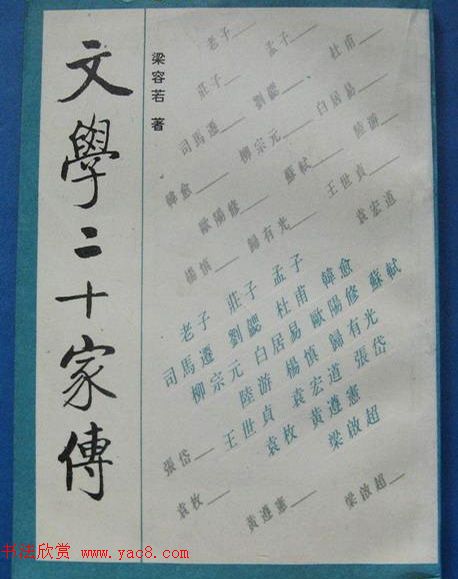 文學二十家傳
梁容若 著
老子 孟子 杜甫
莊子 劉勰 白居易
司馬遷 柳宗元 蘇軾 陸游
韓愈 歐陽修 歸有光 王世貞
楊慎 袁宏道
老子 莊子 孟子
司馬遷 劉勰 杜甫 韓愈
柳宗元 白居易 歐陽修 蘇軾
陸游 楊慎 歸有光
王世貞 袁宏道 張岱
袁枚 黃遵憲
梁啟超
張岱
袁枚 黃遵憲 梁啟超
书法欣赏 www.yac8.com